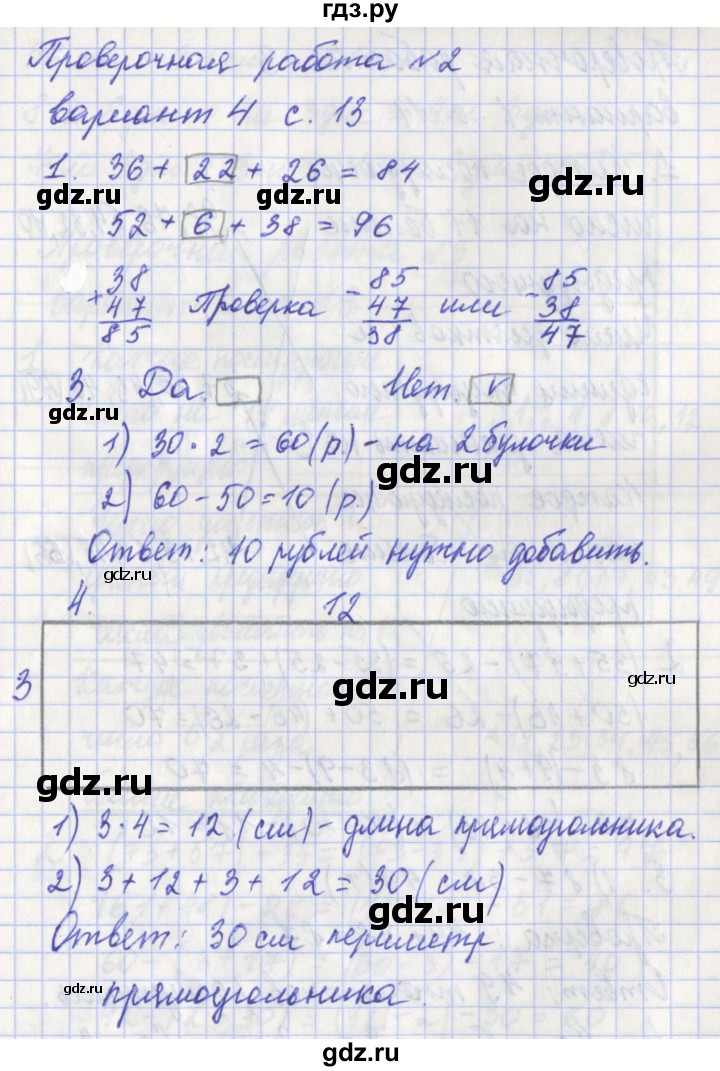 гдз.ру
Проверочная работа №2
вариант 4 с. 13
1. 36 + 22 + 26 = 84
gdz.ru gdz.ru gdz.ru
52 + 6 + 38 = 96
38 85 85
+ 47 Проверка - 47 или - 38
85 38 47
3. Да. Нет. v
gdz.ru gdz.ru
1) 30 · 2 = 60 (р.) - на 2 булочки
gdz.ru
2) 60 - 50 = 10 (р.)
Ответ: 10 рублей нужно добавить.
gdz.ru gdz.ru
4. 12
3 gdz.ru gdz.ru
gdz.ru
1) 3 · 4 = 12 (см) - длина прямоугольника.
2) 3 + 12 + 3 + 12 = 30 (см)
gdz.ru
Ответ: 30 см периметр
gdz.ru gdz.ru
прямоугольника.
gdz.ru